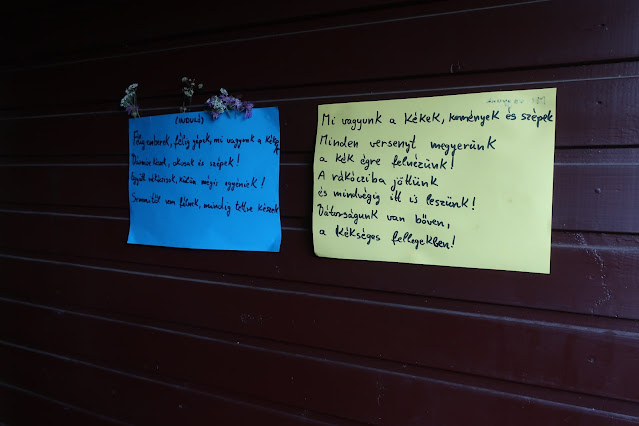 (INDULÓ)
Félig emberek, félig gépek, mi vagyunk a kékek
okosak és szépek!
Együtt mégis egyéniek!
Semmitől sem félnek, mindig tettre készek
Mi vagyunk a kékek, kemények és szépek
Minden versenyt megyerünk
a kék égre felnézünk!
A rákócziba jöttünk
és mindvégig itt is leszünk!
Bátorságunk van bőven,
a kékséges fellegekben!